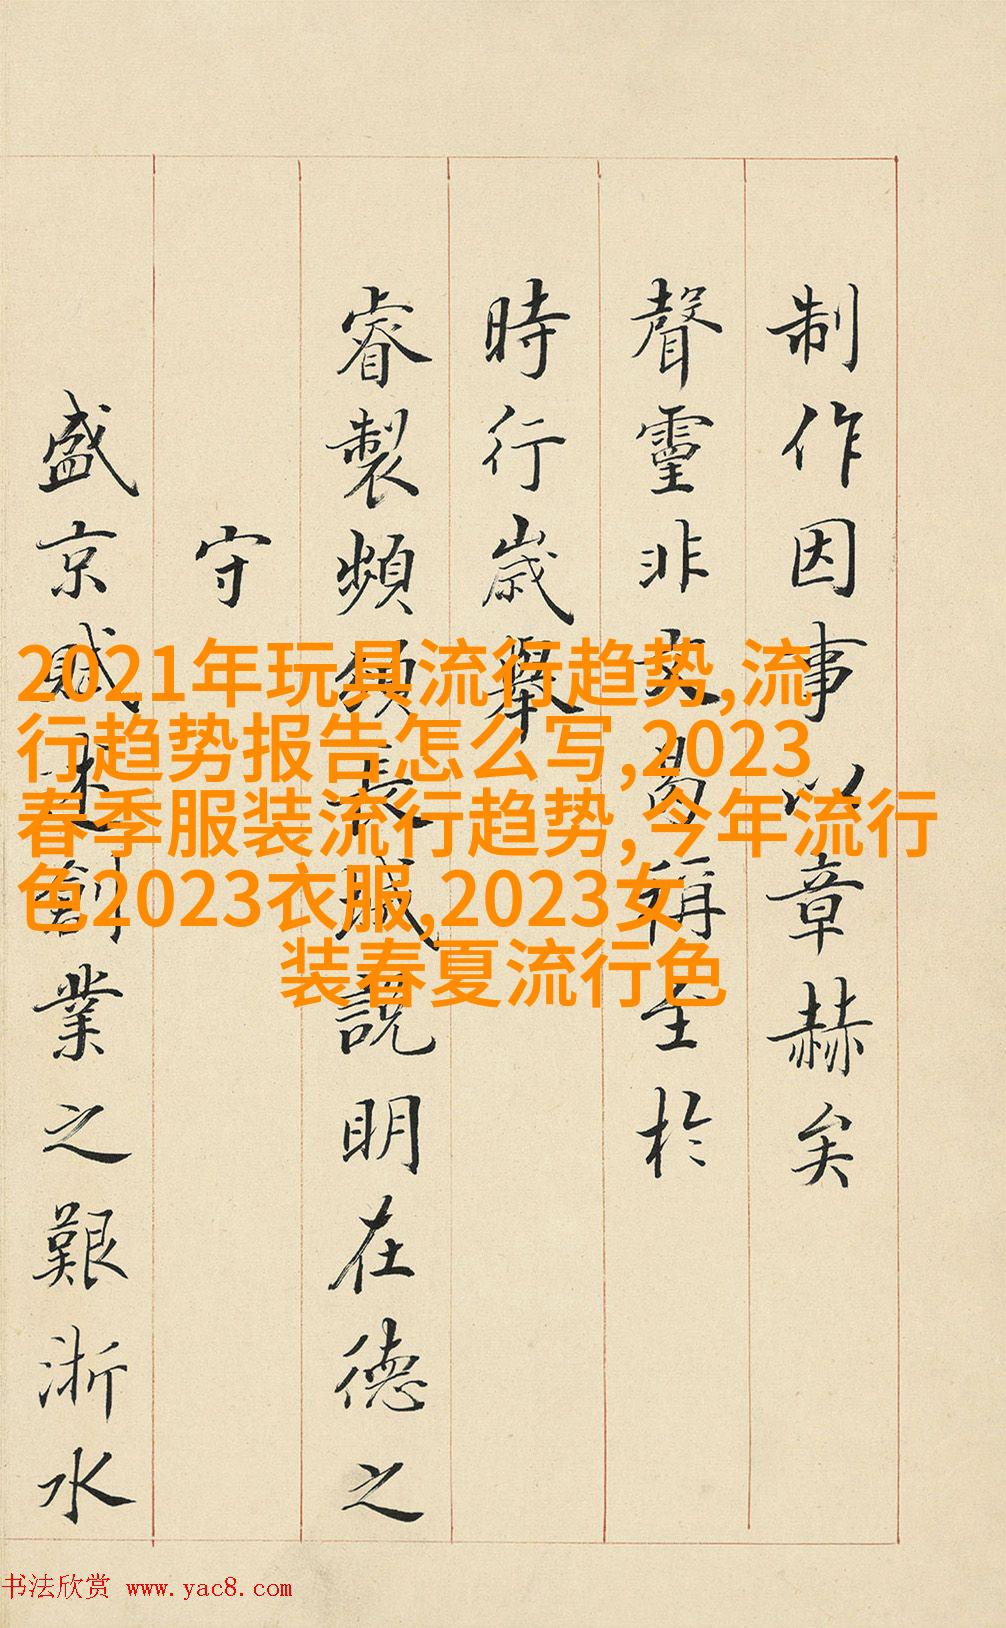 制作因事以章赫矣
聲靈非稱於
時行歲舉
睿製頻頒說明在德之
守
盛京賦述創業之艱浙水
2021年玩具流行趋势,流
行趋势报告怎么写,2023
春季服装流行趋势,今年流行
色2023衣服,2023女
装春夏流行色
书法欣赏 www.yac8.com